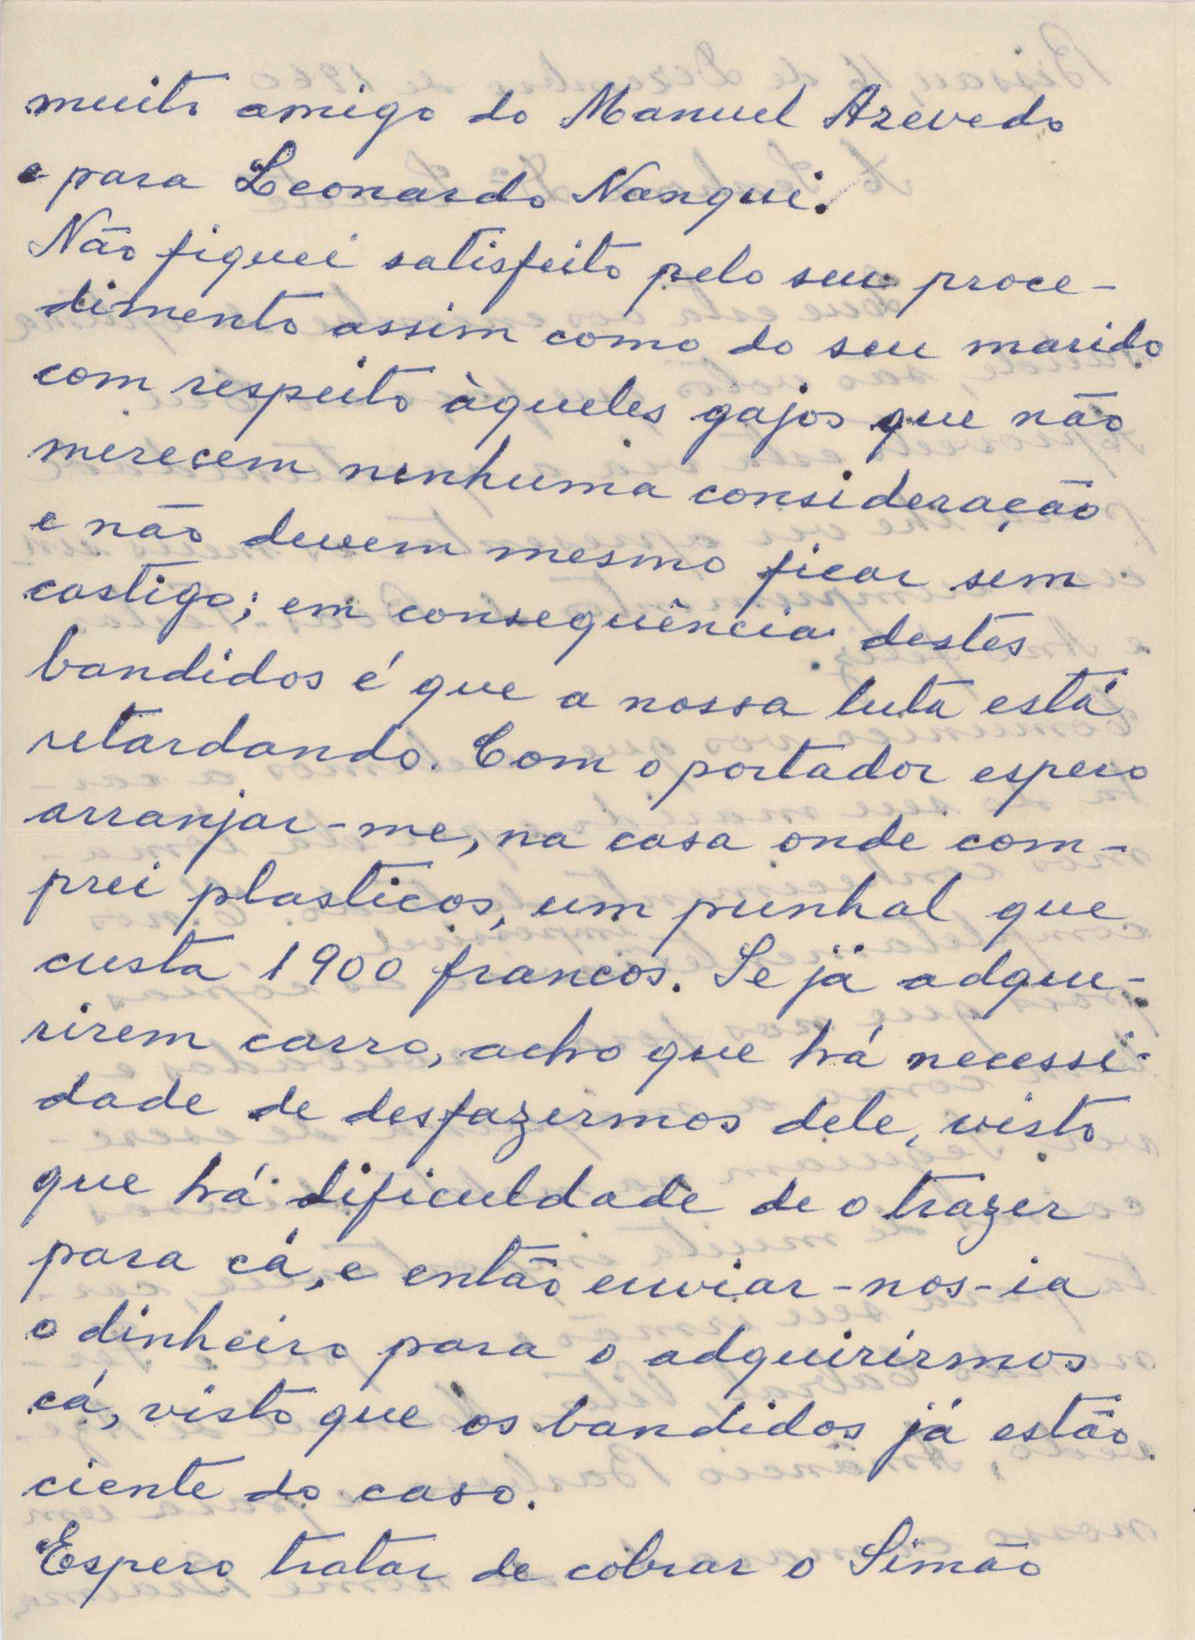 muito amigo do Manuel Azevedo
e para Leonardo Nanqui.
Não fiquei satisfeito pelo seu proce-
dimento assim como do seu marido
com respeito àqueles gajos que não
merecem nenhuma consideração
e não devem mesmo ficar sem
castigo; em consequência destes
bandidos é que a nossa luta está
retardando. Com o portador espero
arranjar-me, na casa onde com-
prei plasticos, um punhal que
custa 1900 francos. Se já adqui-
rirem carro, acho que há necessi-
dade de desfazermos dele, visto
que há dificuldade de o trazer
para cá, e então enviar-nos-ia
o dinheiro para o adquirirmos
cá, visto que os bandidos já estão
ciente do caso.
Espero tratar de cobrar o Simão